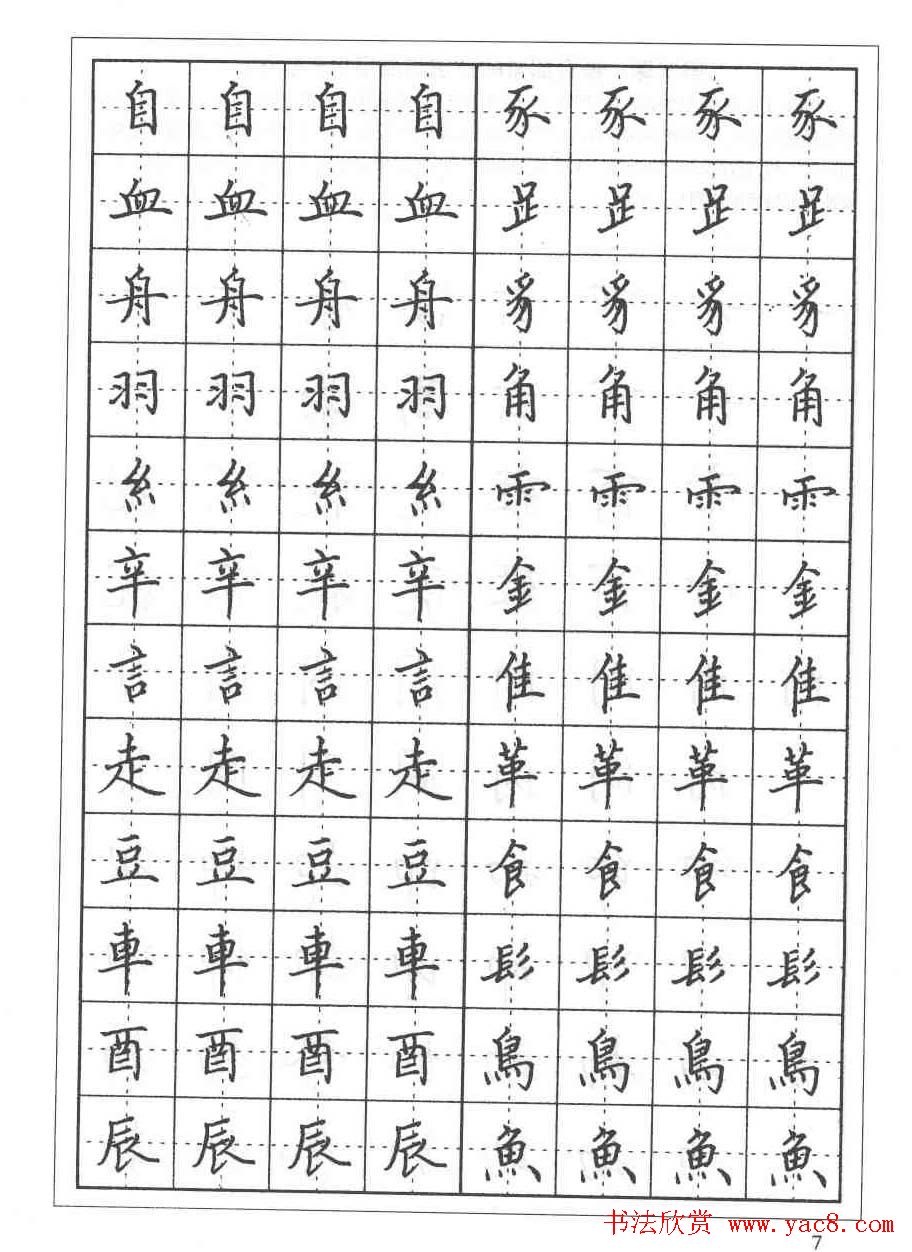 自 自 自 自 豕 豕 豕 豕
血 血 血 血 𧾷 𧾷 𧾷 𧾷
舟 舟 舟 舟 豸 豸 豸 豸
羽 羽 羽 羽 角 角 角 角
糹 糹 糹 糹 雨 雨 雨 雨
辛 辛 辛 辛 金 金 金 金
言 言 言 言 隹 隹 隹 隹
走 走 走 走 革 革 革 革
豆 豆 豆 豆 食 食 食 食
車 車 車 車 髟 髟 髟 髟
酉 酉 酉 酉 鳥 鳥 鳥 鳥
辰 辰 辰 辰 魚 魚 魚 魚
书法欣赏 www.yac8.com
7